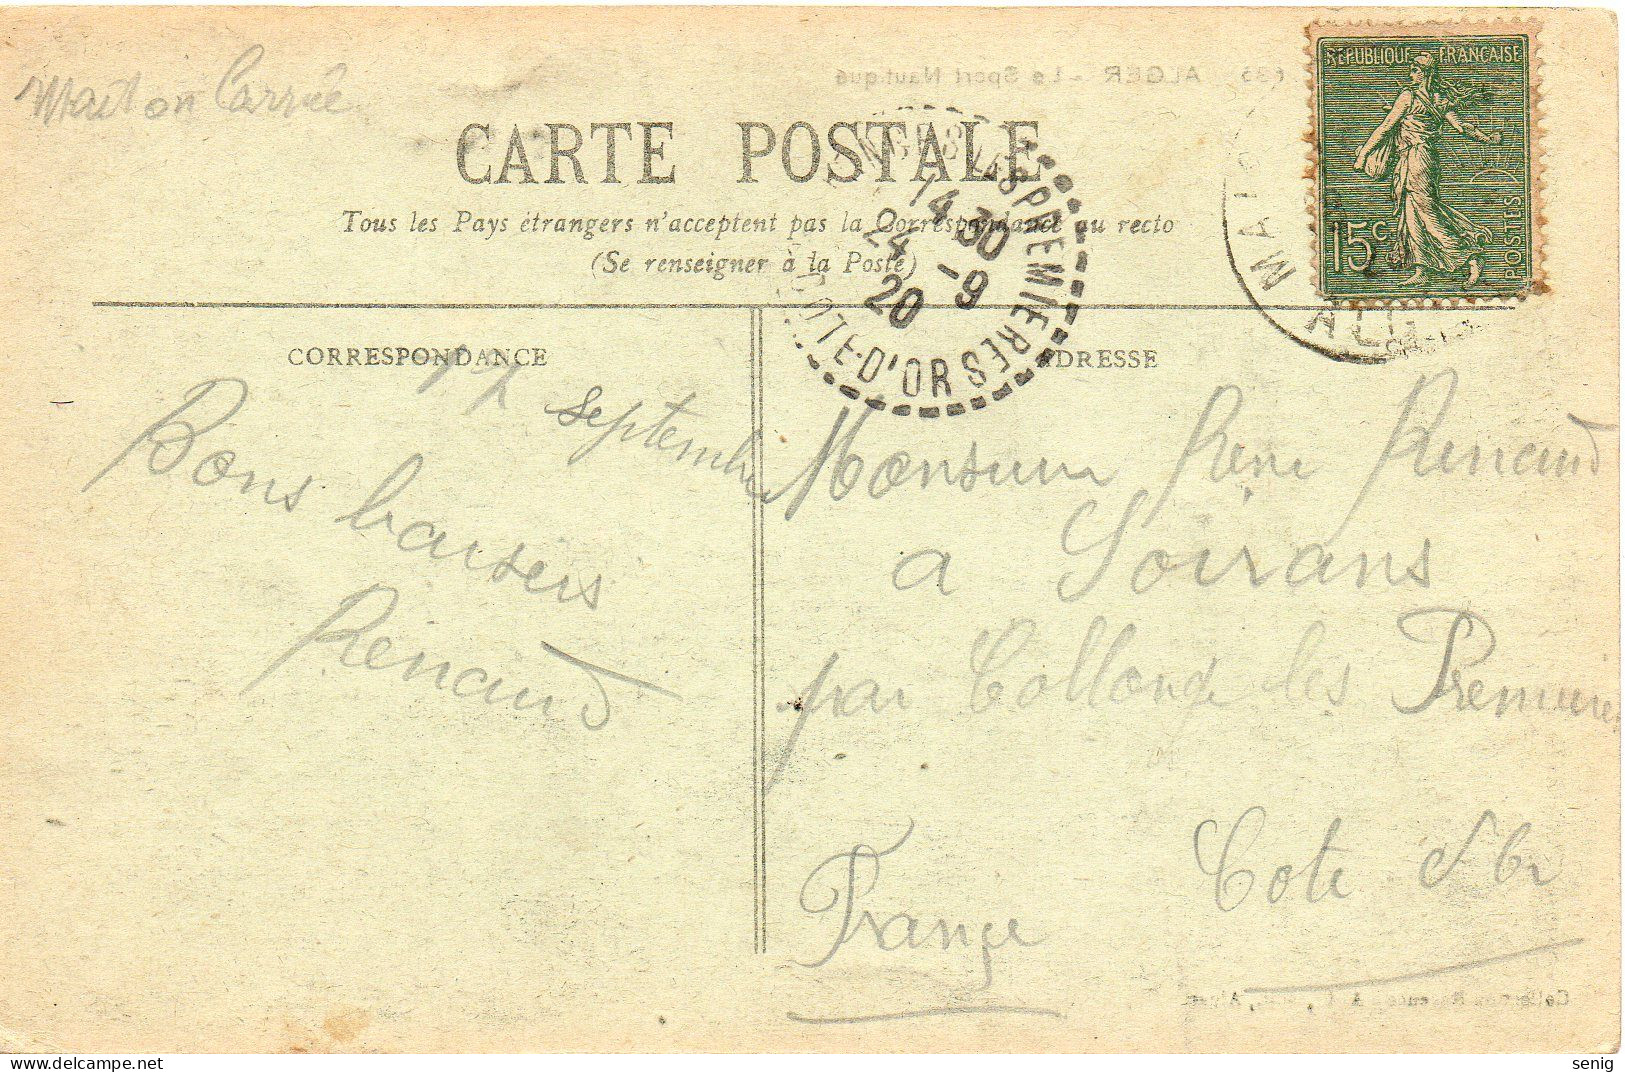 Maison Carrée
RÉPUBLIQUE FRANÇAISE
15c
POSTES
ALGER - Le Sport Nautique
CARTE POSTALE
Tous les Pays étrangers n'acceptent pas la Correspondance au recto
(Se renseigner à la Poste)
LES PREMIERES
14 30
24 -9
20
COTE-D'OR
MAIS
ALG
CORRESPONDANCE
ADRESSE
17 septembre
Bons baisers
Renaud
Monsieur Rene Renaud
a Soirans
par Collonge les Premieres
Cote d'Or
France
senig